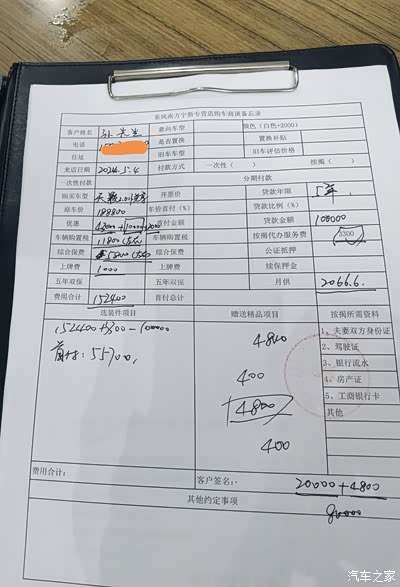 东风南方宁新专营店购车商谈备忘录
客户姓名 孙先生 意向车型 颜色(白色+2000)
电话 是否置换 置换补贴
住址 旧车车型 旧车评估价格
来店日期 2024.5.4 付款方式 一次性( 按揭(
一次性付款 分期付款
购买车型 天籁2.0T 开票价 贷款年限 5年
原车价 189800 车价首付(%) 贷款比例(%)
优惠 +10000 首付金额 贷款金额 100000
车辆购置税 11800 车辆购置税 按揭代办服务费 3300
综合保费 5800 综合保费 公证抵押
上牌费 1000 上牌费 续保押金
五年双保 五年双保 月供 2066.6
费用合计 152400 首付总计
选装件项目 赠送精品项目 按揭所需资料
152400+3300-100000 4800 1、夫妻双方身份证
首付:55700 2、驾驶证
400 3、银行流水
4800 4、房产证
5、工商银行卡
400 其他
费用合计:
客户签名: 20000+4800
其他约定事项
汽车之家